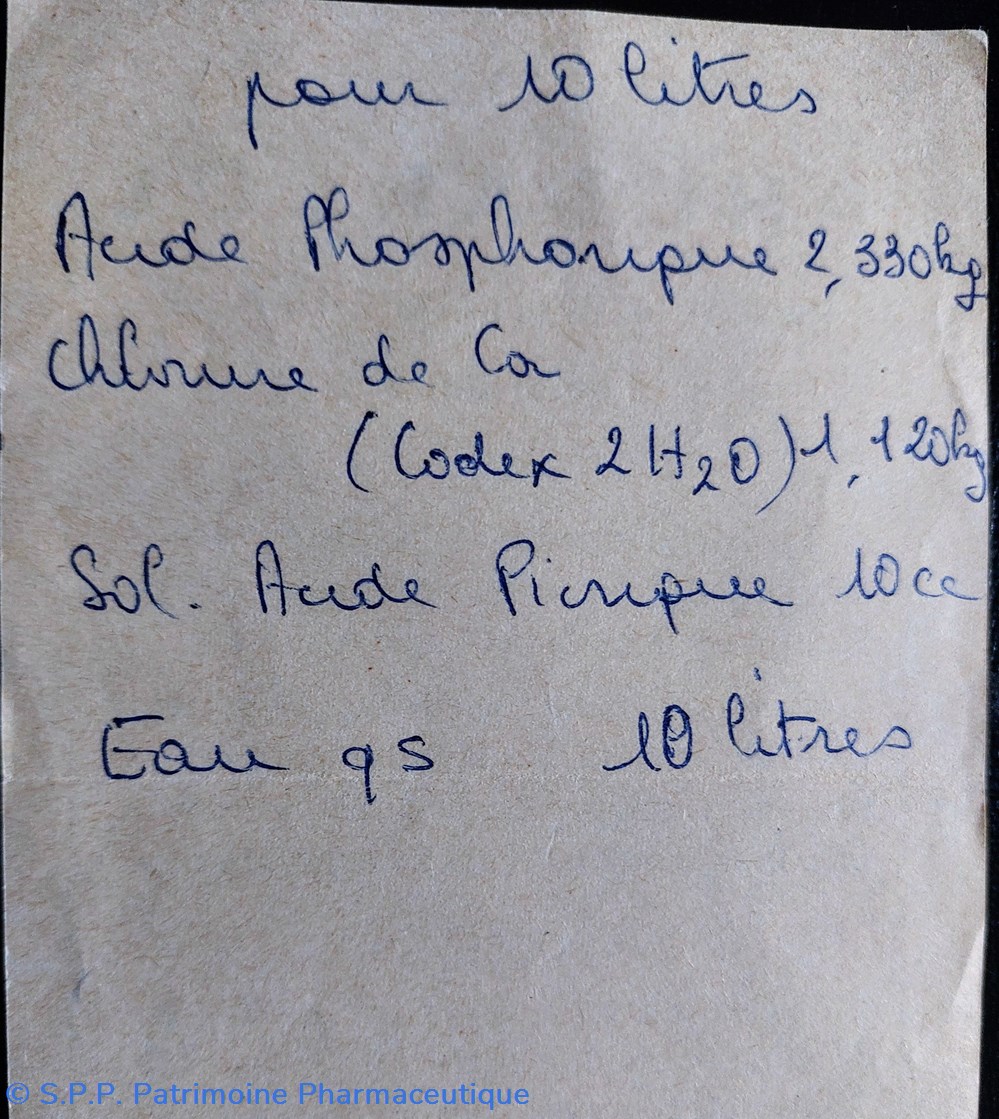 pour 10 litres
Acide Phosphorique 2,330kg
Chlorure de Ca
(Codex 2H2O) 1,120kg
Sol. Acide Picrique 10cc
Eau qs 10 litres
© S.P.P. Patrimoine Pharmaceutique